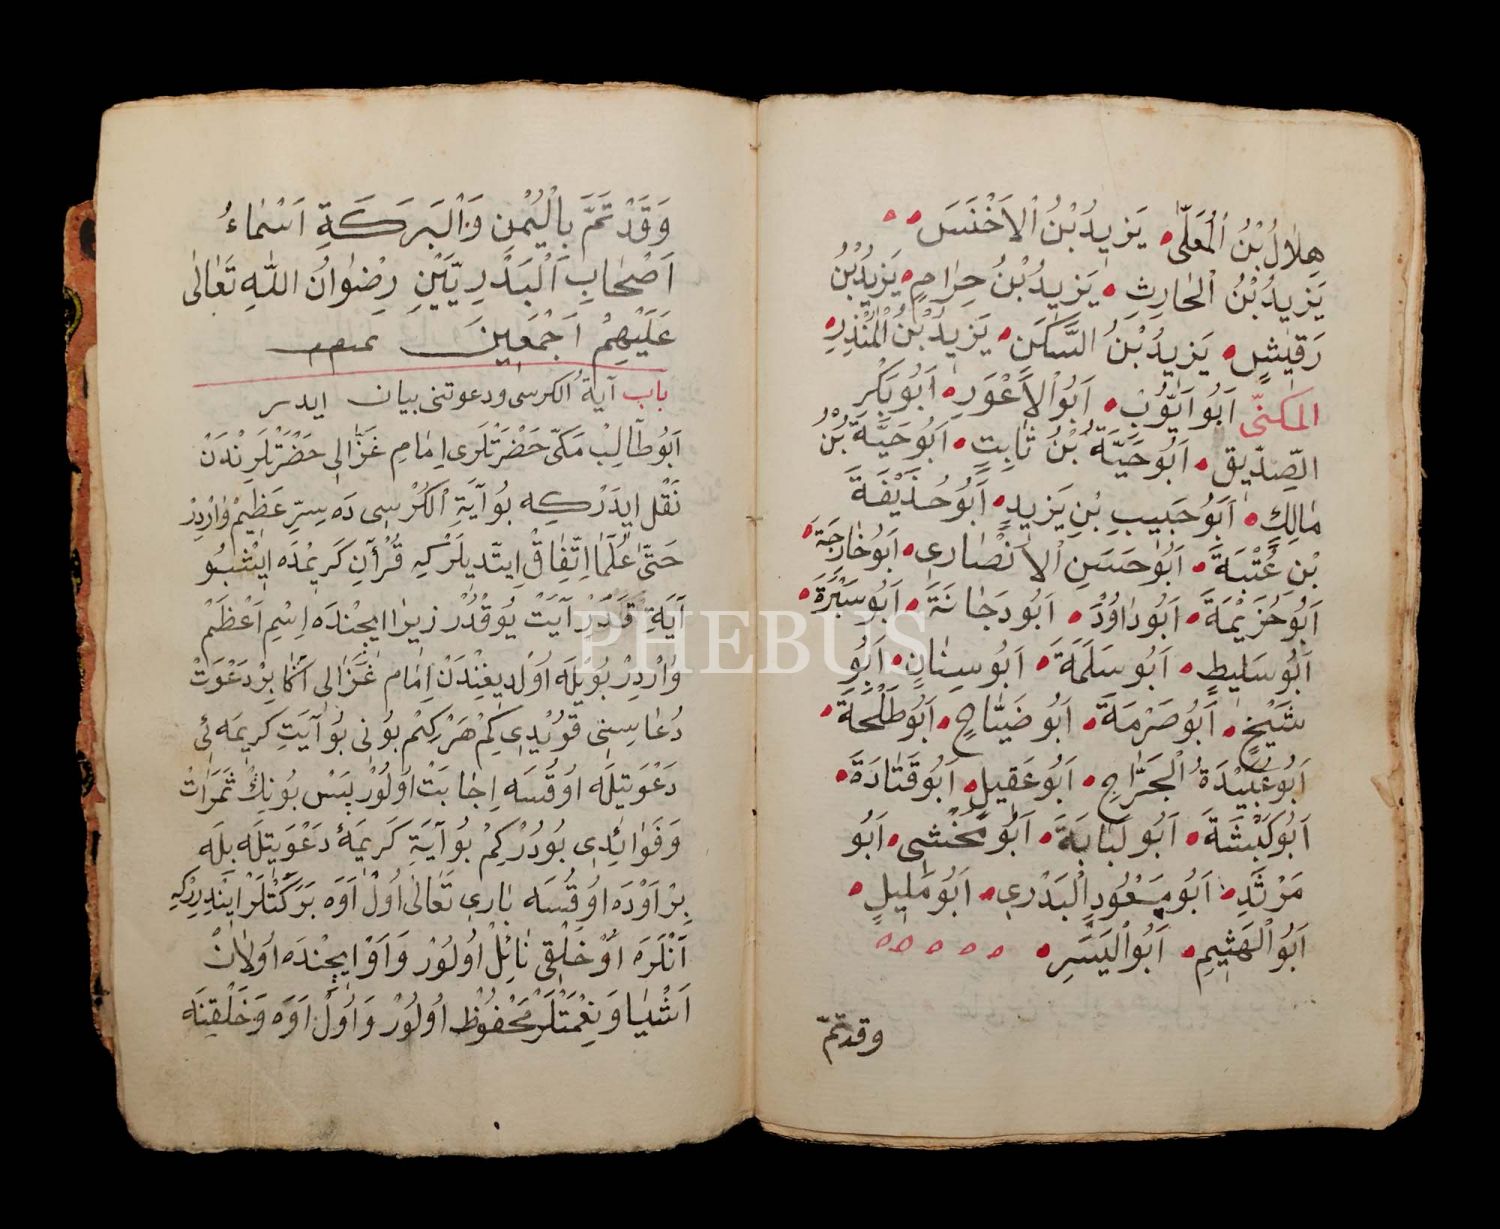 هِلَالُ بْنُ الْمُعَلَّى يَزِيدُ بْنُ الْاَخْنَسَ
يَزِيدُ بْنُ الْحَارِثِ يَزِيدُ بْنُ حِرَامٍ يَزِيدُ بْنُ
رَقِيشٍ يَزِيدُ بْنُ السَّكَنِ يَزِيدُ بْنُ الْمُنْذِرِ
المكنّى اَبُو اَيُّوبَ اَبُو الْاَعْوَرِ اَبُو بَكْرٍ
الصِّدِّيقِ اَبُو حَيَّةَ بْنُ ثَابِتٍ اَبُو حَيَّةَ بْنُ
مَالِكٍ اَبُو حَبِيبِ بْنِ يَزِيدٍ اَبُو حُذَيْفَةَ
بْنِ عُتْبَةَ اَبُو حَسَنِ الْاَنْصَارِى اَبُو خَارِجَةَ
اَبُو خُزَيْمَةَ اَبُو دَاوُدَ اَبُو دَجَانَةَ اَبُو سَبْرَةَ
اَبُو سَلِيطٍ اَبُو سَلَمَةَ اَبُو سِنَانٍ اَبُو
شَيْخٍ اَبُو صَرْمَةَ اَبُو ضَيَّاحٍ اَبُو طَلْحَةَ
اَبُو عُبَيْدَةُ الْجَرَّاحِ اَبُو عَقِيلٍ اَبُو قَتَادَةَ
اَبُو كَبْشَةَ اَبُو لُبَابَةَ اَبُو مَخْشِى اَبُو
مَرْثَدٍ اَبُو مَسْعُودٍ الْبَدْرِى اَبُو مُلَيْلٍ
اَبُو الْهَيْثِيمِ اَبُو الْيَسَرِ
وقد تمّ
وَقَدْ تَمَّ بِالْيُمْنِ وَالْبَرَكَةِ اَسْمَاءُ
اَصْحَابِ الْبَدْرِيّينِ رِضْوَانُ اللّٰهِ تَعَالٰى
عَلَيْهِمْ اَجْمَعِينَ
باب آية الكرسى و دعوتنى بيان ايدر
اَبُو طَالِبْ مَكِّى حَضْرَتْلَرِى اِمَامِ غَزَّالِى حَضْرَتْلَرِنْدَنْ
نَقْل ايدَرْكِه بُو آيَةِ الْكُرْسِى دَه سِرِّ عَظِيمْ وَارْدِرْ
حَتَّى عُلَمَا اِتِّفَاقْ اِيتْدِيلَرْكِه قُرْآنِ كَرِيمْدَه ايشْبُو
آيَةِ قَدَرْ آيَتْ يُوقْدُرْ زِيرَا ايچِنْدَه اِسْمِ اَعْظَمْ
وَارْدِرْ بُويْلَه اَوْلدِيغِنْدَنْ اِمَام غَزَّالِى آكَا بِرْ دَعْوَتْ
دُعَاسِنِى قُويْدِى كِمْ هَرْكِمْ بُونِى بُو آيَتِ كَرِيمَه ئِى
دَعْوَتِيلَه اوُقُسَه اِجَابَتْ اوُلُورْ بَسْ بُونِكْ ثَمَرَاتْ
وَ فَوَائِدِى بُودُرْكِمْ بُو آيَةِ كَرِيمَهْ دَعْوَتِيلَه بِلَه
بِرْ اَوْدَه اوُقُسَه بَارِى تَعَالَى اوُلْ اَوَه بَرَكَتْلَرْ ايندِرِرْكِه
آنْلَرَه اَوْ خَلْقِى نَائِلْ اوُلُورْ وَ اَوْ ايچِنْدَه اوُلَانْ
اَشْيَا وَ نِعْمَتْلَرْ مَحْفُوظْ اوُلُورْ وَ اوُلْ اَوَه وَ خَلْقِنَه